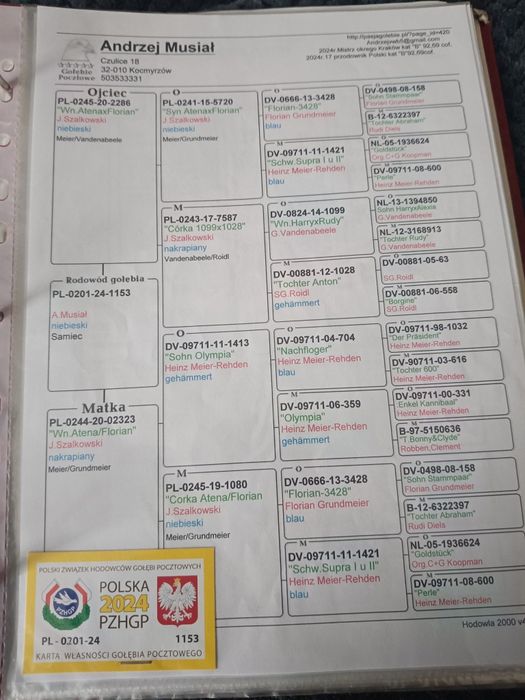 Andrzej Musiał
Czulice 18
32-010 Kocmyrzów
503533331
Gołębie
Pocztowe
http://pasjagolebie.pl/?page_id=420
2024r.Mistrz okręgu Kraków kat "B" 92,69 cof.
2024r.17 przodownik Polski kat "B"92,69cof.
Ojciec
PL-0245-20-2286
"Wn.AtenaxFlorian"
J.Szalkowski
niebieski
Meier/Vandenabeele
Rodowód gołębia
PL-0201-24-1153
A.Musiał
niebieski
Samiec
Matka
PL-0244-20-02323
"Wn.Atena/Florian"
J.Szalkowski
nakrapiany
Meier/Grundmeier
O
PL-0241-15-5720
"Syn AtenaxFlorian"
J.Szalkowski
niebieski
Meier/Grundmeier
M
PL-0243-17-7587
"Córka 1099x1028"
J.Szalkowski
nakrapiany
Vandenabeele/Roidl
O
DV-09711-11-1413
"Sohn Olympia"
Heinz Meier-Rehden
gehämmert
M
PL-0245-19-1080
"Corka Atena/Florian
J.Szalkowski
niebieski
Meier/Grundmeier
O
DV-0666-13-3428
"Florian-3428"
Florian Grundmeier
blau
M
DV-09711-11-1421
"Schw.Supra I u II"
Heinz Meier-Rehden
blau
O
DV-0824-14-1099
"Wn.HarryxRudy"
G.Vandenabeele
M
DV-00881-12-1028
"Tochter Anton"
SG.Roidl
gehämmert
O
DV-09711-04-704
"Nachfloger"
Heinz Meier-Rehden
blau
M
DV-09711-06-359
"Olympia"
Heinz Meier-Rehden
gehämmert
O
DV-0666-13-3428
"Florian-3428"
Florian Grundmeier
blau
M
DV-09711-11-1421
"Schw.Supra I u II"
Heinz Meier-Rehden
blau
DV-0498-08-158
"Sohn Stammpaar"
Florian Grundmeier
M
B-12-6322397
"Tochter Abraham"
Rudi Diels
O
NL-05-1936624
"Goldstück"
Org.C+G Koopman
M
DV-09711-08-600
"Perle"
Heinz Meier-Rehden
O
NL-13-1394850
Sohn HarryxAlexia
G.Vandenabeele
M
NL-12-3168913
"Tochter Rudy"
G.Vandenabeele
O
DV-00881-05-63
SG.Roidl
M
DV-00881-06-558
"Borgine"
SG.Roidl
O
DV-09711-98-1032
"Der Präsident"
Heinz Meier-Rehden
M
DV-90711-03-616
"Tochter 600"
Heinz Meier-Rehden
O
DV-09711-00-331
"Enkel Kannibaal"
Heinz Meier-Rehden
M
B-97-5150636
"T.Bonny&Clyde"
Robben,Clement
O
DV-0498-08-158
"Sohn Stammpaar"
Florian Grundmeier
M
B-12-6322397
"Tochter Abraham"
Rudi Diels
O
NL-05-1936624
"Goldstück"
Org.C+G Koopman
M
DV-09711-08-600
"Perle"
Heinz Meier-Rehden
Hodowla 2000 v4
POLSKI ZWIĄZEK HODOWCÓW GOŁĘBI POCZTOWYCH
PZHGP
POLSKA
2024
PZHGP
PL - 0201-24
1153
KARTA WŁASNOŚCI GOŁĘBIA POCZTOWEGO